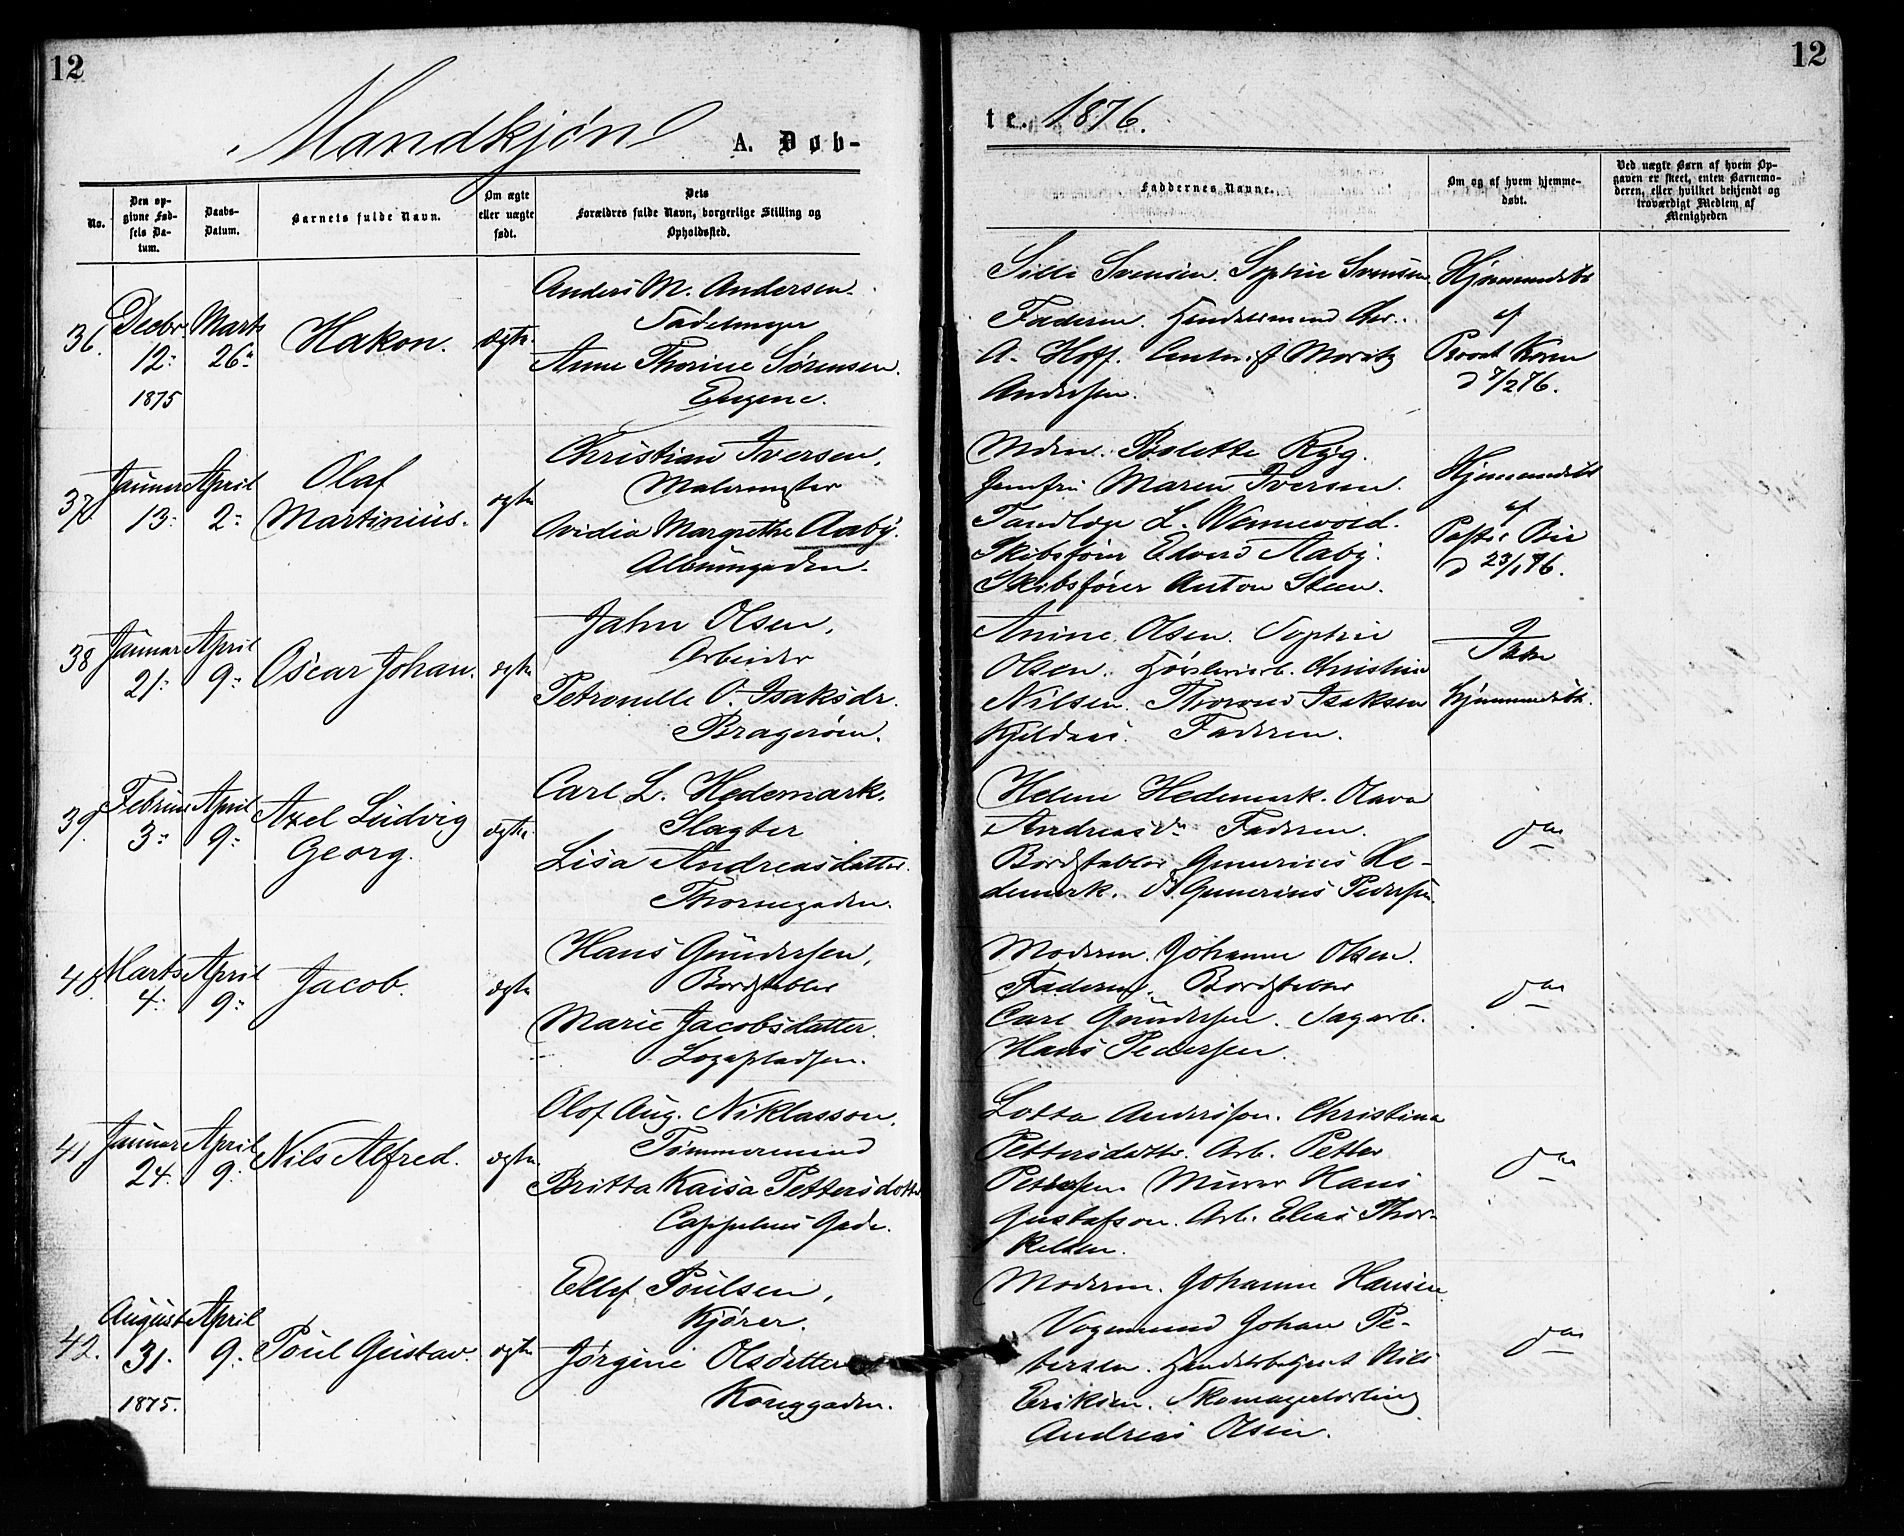 12
12
Mandkjøn
A. Døb-
te. 1876.
No.
Den op-
givne Fød-
sels Da-
tum.
Daabs-
Datum.
Barnets fulde Navn.
Om ægte
eller uægte
født.
Dets
Forældres fulde Navn, borgerlige Stilling og
Opholdssted.
Faddernes Navne.
Om og af hvem hjemme-
døbt.
Ved uægte Børn af hvem Op-
gaven er skeet, enten Barnemo-
deren, eller hvilket bekjendt og
troværdigt Medlem af
Menigheden
36.
Decbr.
12.
1875
Marts
26.
Hakon.
ægte.
Anders M. Andersen.
Sadelmager
Anne Thorine Sørensen.
Engene.
Sille Svensen. Sophie Svensen
Faderen. Handelsmand Chr.
A. Hoff. Contorist Moritz
Andersen.
Hjemmedøbt
af
Provst Koren
d 7/2 76.
37.
Januar
13.
April
2.
Olaf
Martinius.
ægte
Christian Iversen,
Malermester
Ovidia Margrethe Aaby.
Albumgaden.
Mdm. Bolette Ryg.
Jomfru Maren Iversen.
Tandlæge L. Wennevold.
Skibsfører Edvard Aaby.
Skibsfører Anton Steen.
Hjemmedøbt
af
Pastor Bie
d 23/1 76.
38
Januar
21.
April
9.
Oscar Johan.
ægte
Jahn Olsen,
Arbeider
Petronelle O. Isaksdr.
Bragerøen.
Anine Olsen. Sophie
Olsen. Christian
Nilsen. Isaksen
Kjeldaas. Faderen.
Ikke
hjemmedøbt.
39.
Februar
3.
April
9.
Axel Ludvig
Georg.
ægte.
Carl L. Hedemark.
Slagter
Lisa Andreasdatter.
Thornegaden.
Helene Hedemark. Olava
Andreasdr. Faderen.
Bordstabler Gunerius He-
demark. Gunerius Pedersen
do
40.
Marts
4.
April
9.
Jacob.
ægte
Hans Gundersen,
Bordstabler
Marie Jacobsdatter.
Løgepladsen.
Moderen. Johanne Olsen.
Faderen. Bordstabler
Carl Gundersen. Sagarb.
Hans Pedersen.
do
41
Januar
24.
April
9.
Nils Alfred.
ægte.
Olof Aug. Niklasson.
Tømmermand
Britta Kaisa Pettersdotter
Cappelens Gade.
Lotta Andersson. Christina
Pettersdotter. Arb. Petter
Pettersen Murer Hans
Gustafson. Arb. Elias Thor-
kelsen.
do
42.
August
31.
1875.
April
9.
Poul Gustav.
ægte
Ellef Poulsen,
Kjører.
Jørgine Olsdatter
Konggaden.
Moderen. Johanne Hansen
Vognmand Johan Pe-
tersen. Handelsbetjent Nils
Eriksen. Skomagerlærling
Andreas Olsen.
do